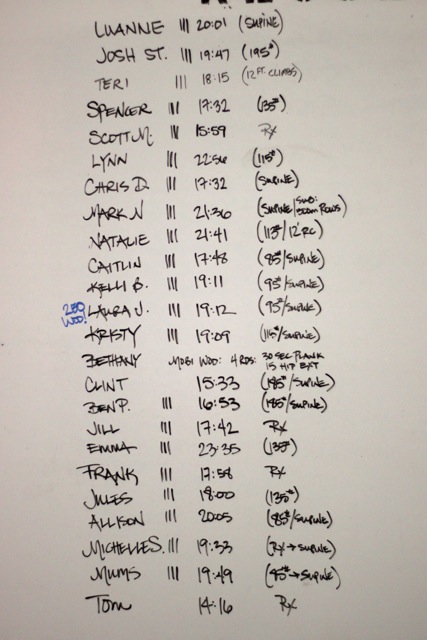 LUANNE III 20:01 (SUPINE)
JOSH ST. III 19:47 (195#)
TERI III 18:15 (12 FT. CLIMBS)
SPENCER III 17:32 (135#)
SCOTT M. III 15:59 Rx
LYNN III 22:56 (115#)
CHRIS D. III 17:32 (SUPINE)
MARK N III 21:36 (SUPINE/SUB: 500m ROWS)
NATALIE III 21:41 (113#/12' RC)
CAITLIN III 17:48 (85#/SUPINE)
KELLI B. III 19:11 (95#/SUPINE)
250 WOD! LAURA J. III 19:12 (95#/SUPINE)
KRISTY III 19:09 (115#/SUPINE)
BETHANY MOBI WOD: 4 RDS: 30 SEC PLANK
15 HIP EXT
CLINT 15:33 (185#/SUPINE)
BEN P. III 16:53 (185#/SUPINE)
JILL III 17:42 Rx
EMMA III 23:35 (135#)
FRANK III 17:58 Rx
JULES III 18:00 (135#)
ALLISON III 20:05 (85#/SUPINE)
MICHELLE S. III 19:33 (Rx → SUPINE)
MUMS III 19:49 (95# → SUPINE)
Tom 14:16 Rx